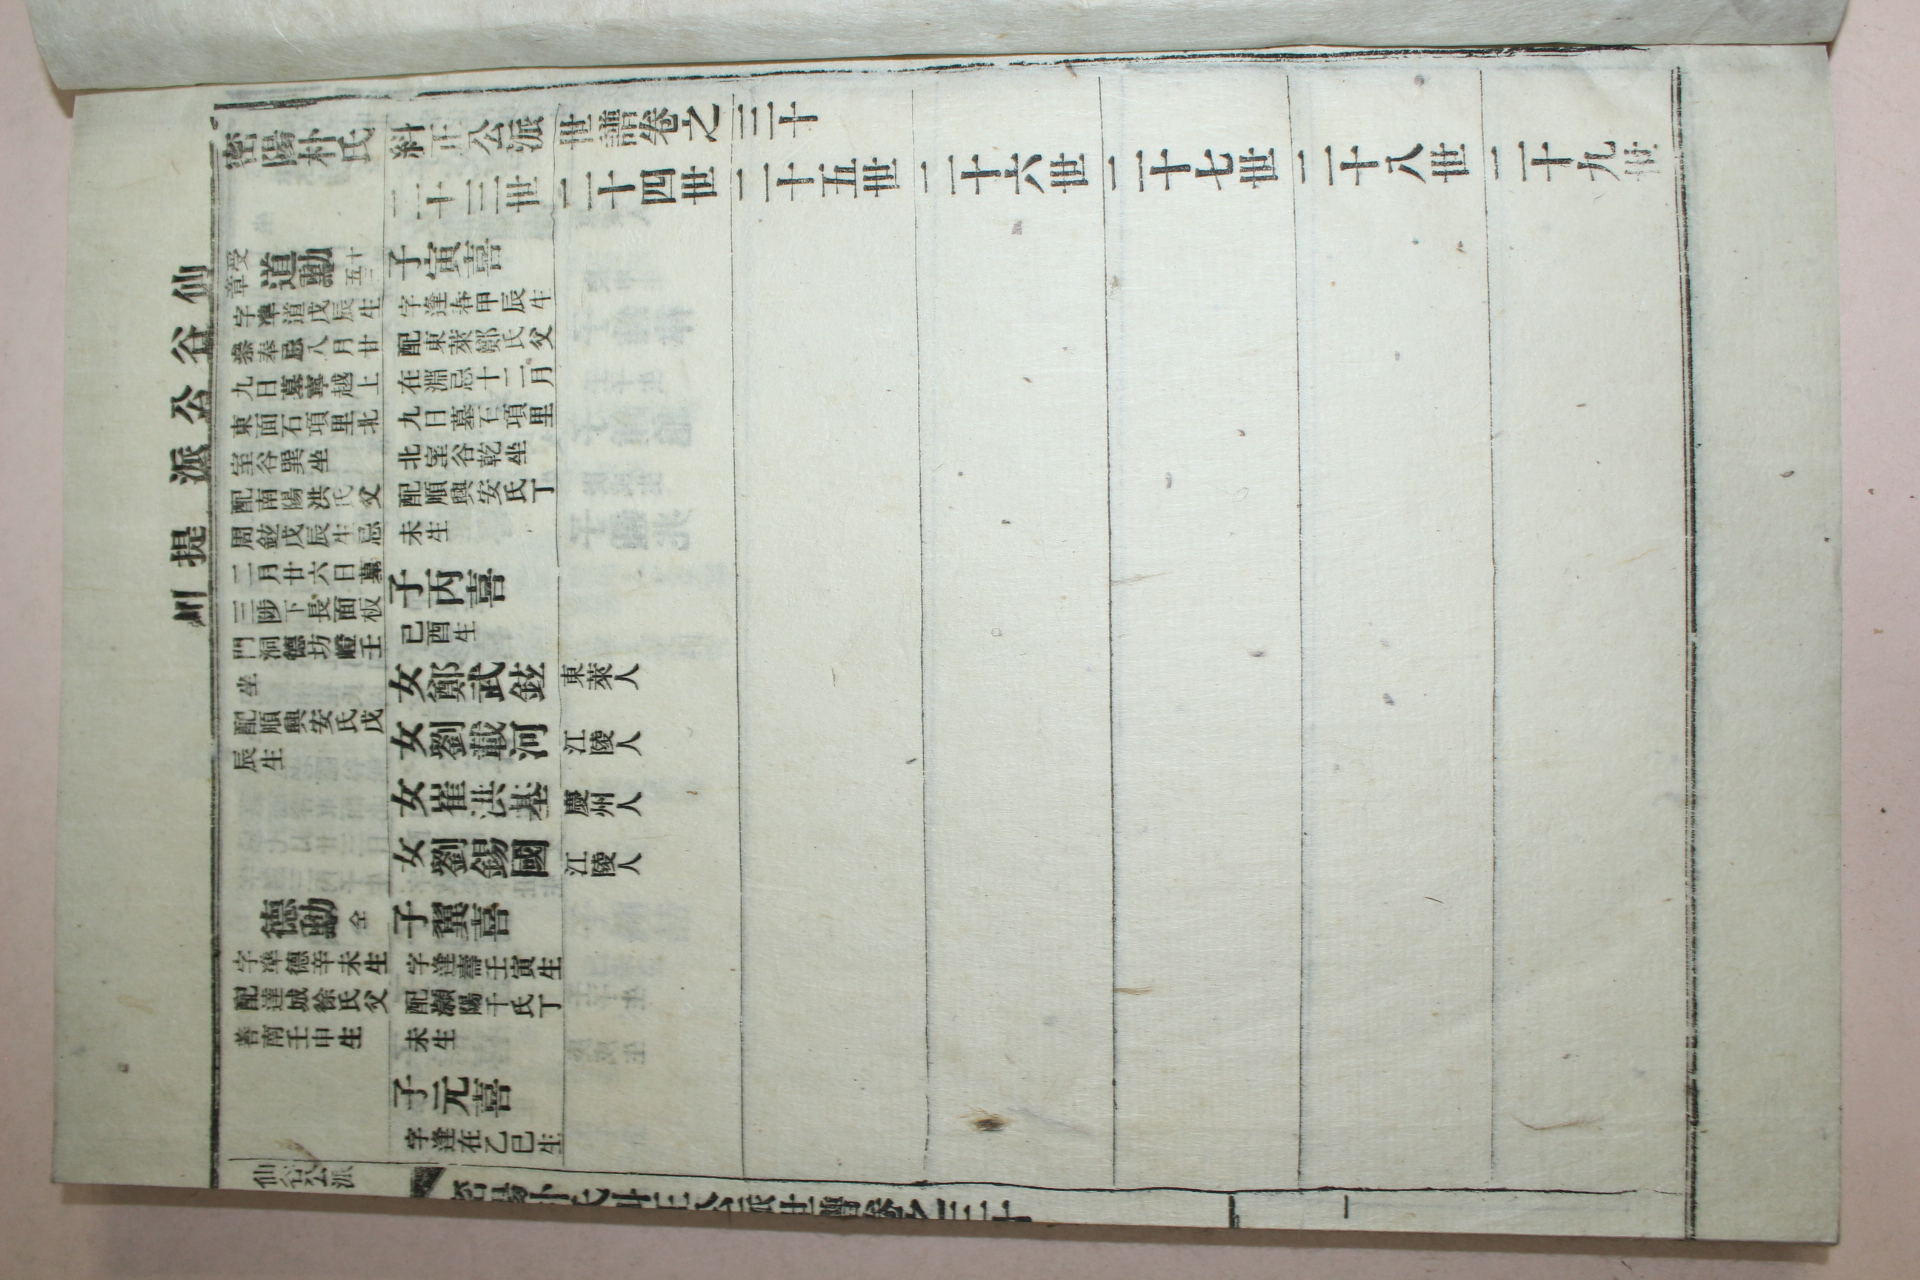 仙谷公派 堤川
密陽朴氏糾正公派世譜卷之三十
二十三世
二十四世
二十五世
二十六世
二十七世
二十八世
二十九世
受章 道勳 十五
字準道戊辰生
叅奉忌八月廿
九日墓寧越上
東面石項里北
室谷巽坐
配南陽洪氏父
周鉉戊辰生忌
二月廿六日墓
三陟下長面板
門洞德坊嶝壬
坐
配順興安氏戊
辰生
德勳 仝
字準德辛未生
配達城徐氏父
善南壬申生
子寅喜
字逢春甲辰生
配東萊鄭氏父
在淵忌十二月
九日墓石項里
北室谷乾坐
配順興安氏丁
未生
子丙喜
己酉生
女鄭武鉉 東萊人
女劉載河 江陵人
女崔洪基 慶州人
女劉錫國 江陵人
子翼喜
字逢壽壬寅生
配潁陽千氏丁
未生
子元喜
字逢在乙巳生
仙谷公派
密陽朴氏糾正公派世譜卷之三十
一